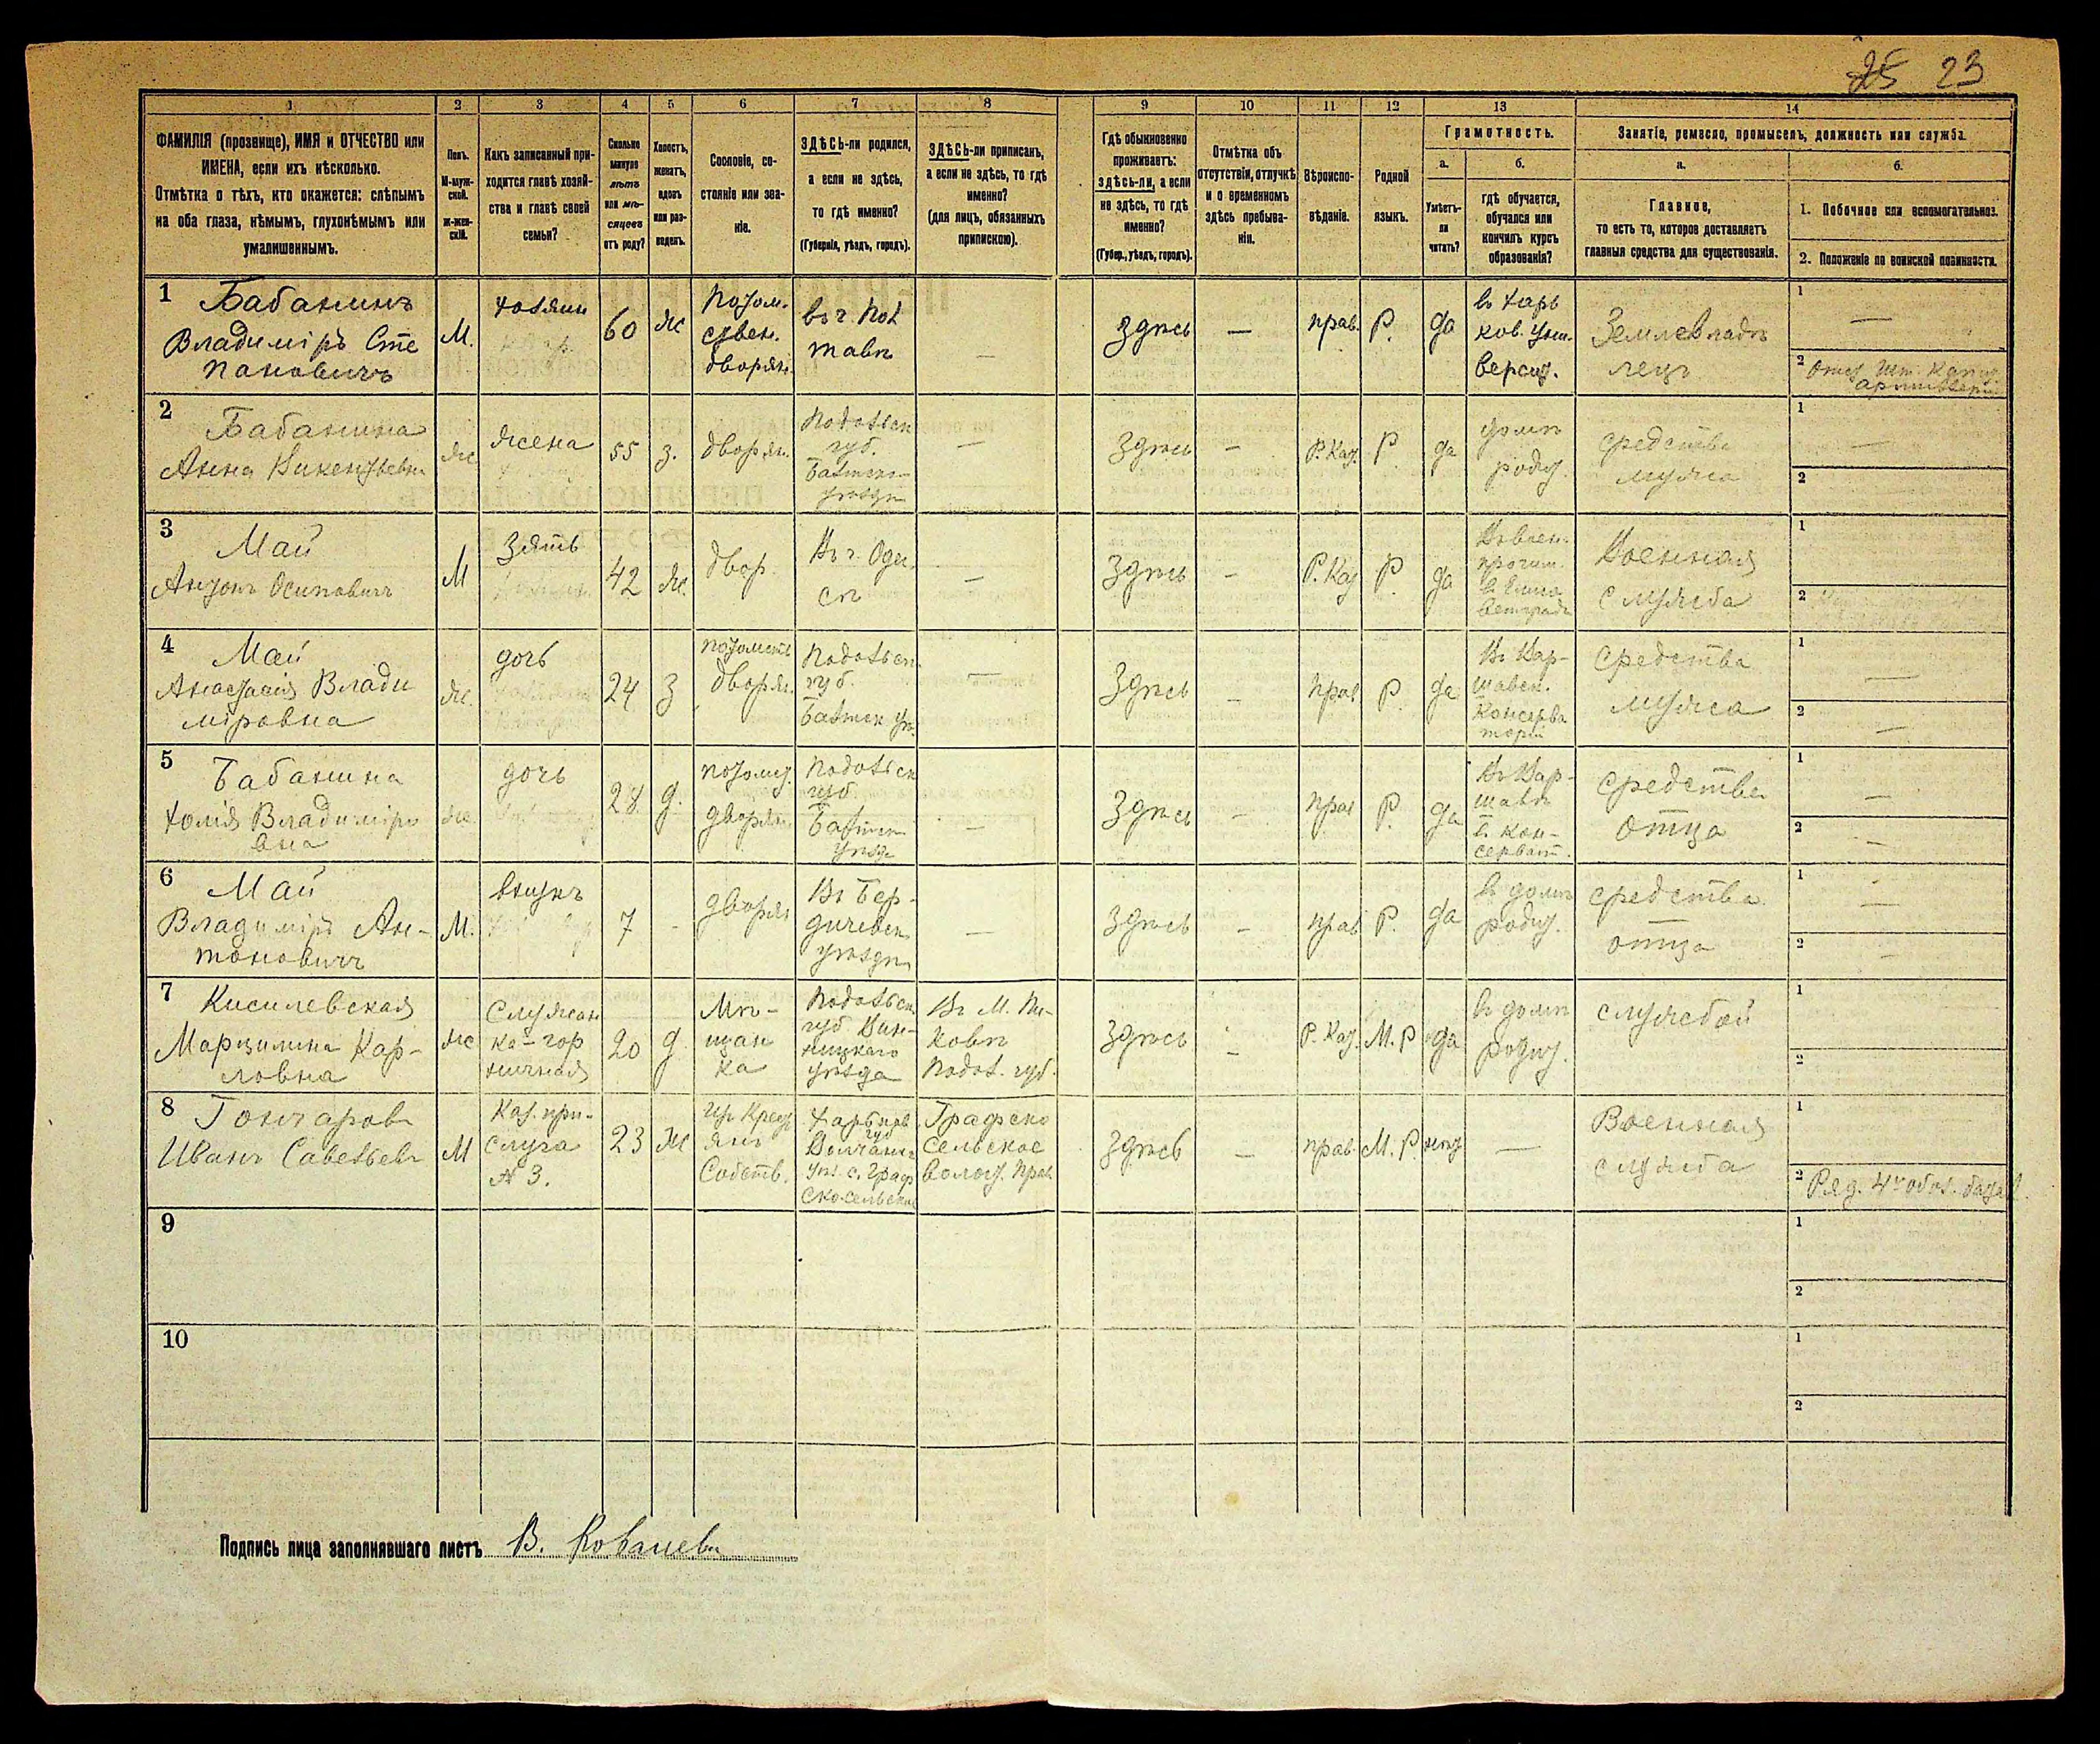 25 23
1 2 3 4 5 6 7 8 9 10 11 12 13 14
ФАМИЛІЯ (прозвище), ИМЯ и ОТЧЕСТВО или
ИМЕНА, если ихъ нѣсколько.
Отмѣтка о тѣхъ, кто окажется: слѣпымъ
на оба глаза, нѣмымъ, глухонѣмымъ или
умалишеннымъ.
Полъ.
М-муж-
ской.
ж-жен-
скій.
Какъ записанный при-
ходится главѣ хозяй-
ства и главѣ своей
семьи?
Сколько
минуло
лѣтъ
или мѣ-
сяцевъ
отъ роду?
Холостъ,
женатъ,
вдовъ
или раз-
веденъ.
Сословіе, со-
стояніе или зва-
ніе.
ЗДѢСЬ-ли родился,
а если не здѣсь,
то гдѣ именно?
(Губернія, уѣздъ, городъ).
ЗДѢСЬ-ли приписанъ,
а если не здѣсь, то гдѣ
именно?
(для лицъ, обязанныхъ
припискою).
Гдѣ обыкновенно
проживаетъ:
здѣсь-ли, а если
не здѣсь, то гдѣ
именно?
(Губер., уѣздъ, городъ).
Отмѣтка объ
отсутствіи, отлучкѣ
и о временномъ
здѣсь пребыва-
ніи.
Вѣроиспо-
вѣданіе.
Родной
языкъ.
Грамотность.
а.
Умѣетъ-
ли
читать?
б.
гдѣ обучается,
обучался или
кончилъ курсъ
образованія?
Занятіе, ремесло, промыселъ, должность или служба.
а.
Главное,
то есть то, которое доставляетъ
главныя средства для существованія.
б.
1. Побочное или вспомогательное.
2. Положеніе по воинской повинности.
1 Бабанинъ
Владиміръ Сте
пановичъ
М.
хозяин
60
ж
потом.
ствен.
дворян.
въ г. Пол
тавѣ
—
здѣсь
—
прав.
Р.
да
въ Харь
ков. Уни.
версит.
Землевладѣ
лецъ
1 —
2 Отст. Шт. Капит
артиллеріи
2 Бабанина
Анна Викентьевна
ж
жена
55
з.
дворян.
Подольск
губ.
Балтск
уѣздѣ
—
здѣсь
—
Р. Кат.
Р
да
дома
родит.
средства
мужа
1 —
2
3 Май
Антонъ Осиповичъ
М
зять
42
ж.
двор.
Въ г. Одес
сѣ
—
здѣсь
—
Р. Кат
Р
да
В воен.
прогим.
в Елиса
ветградѣ
Военная
служба
1
2
4 Май
Анастасія Влади
міровна
ж.
дочь
24
з
потомств
дворян.
Подольск.
губ.
Балтск уѣ.
—
здѣсь
—
прав
Р
да
Въ Вар-
шавск.
Консерва
торіи
средства
мужа
1 —
2 —
5 Бабанина
Юлія Владиміро
вна
ж
дочь
28
д.
потомст.
дворян.
Подольск
губ.
Балтск
уѣздѣ
—
здѣсь
—
прав
Р.
да
Въ Вар-
шавѣ
в. кон-
серват.
средства
отца
1 —
2 —
6 Май
Владиміръ Ан-
тоновичъ
М.
внукъ
7
-
дворян
Въ Бер-
дичевск
уѣздѣ
—
здѣсь
—
прав
Р.
да
въ домѣ
родит.
средства
отца
1 —
2 -
7 Кисилевская
Марцилина Кар-
ловна
ж
Служан
ка-гор
ничная
20
д
Мѣ-
щан
ка
Подольск
губ Вин-
ницкаго
уѣзда
Въ М. Пи-
ковѣ
Подол. губ.
здѣсь
—
Р. Кат.
М. Р
да
въ домѣ
родит.
службой
1
2
8 Гончаровъ
Иванъ Савельевъ
М
Каз. при-
слуга
№ 3.
23
ж
изъ Крест
янъ
Собств.
Харьков
губ
Волчанск
уѣз. с. Граф
ско-сельское
Графско
Сельское
волост. прав.
здѣсь
—
прав.
М. Р.
нѣт
—
Военная
служба
1
2 Ряд. 4го обоз. батал.
9
1
2
10
1
2
Подпись лица заполнявшаго листъ В. Ковалевъ